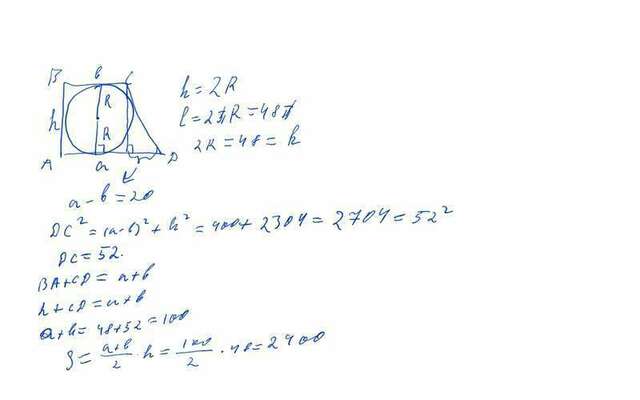 B b C
h = 2R
h R
l = 2πR = 48π
R
2R = 48 = h
A a D
a - b = 20
DC² = (a-b)² + h² = 400 + 2304 = 2704 = 52²
DC = 52.
BA + CD = a + b
h + CD = a + b
a + b = 48 + 52 = 100
S = \frac{a+b}{2} · h = \frac{100}{2} · 48 = 2400